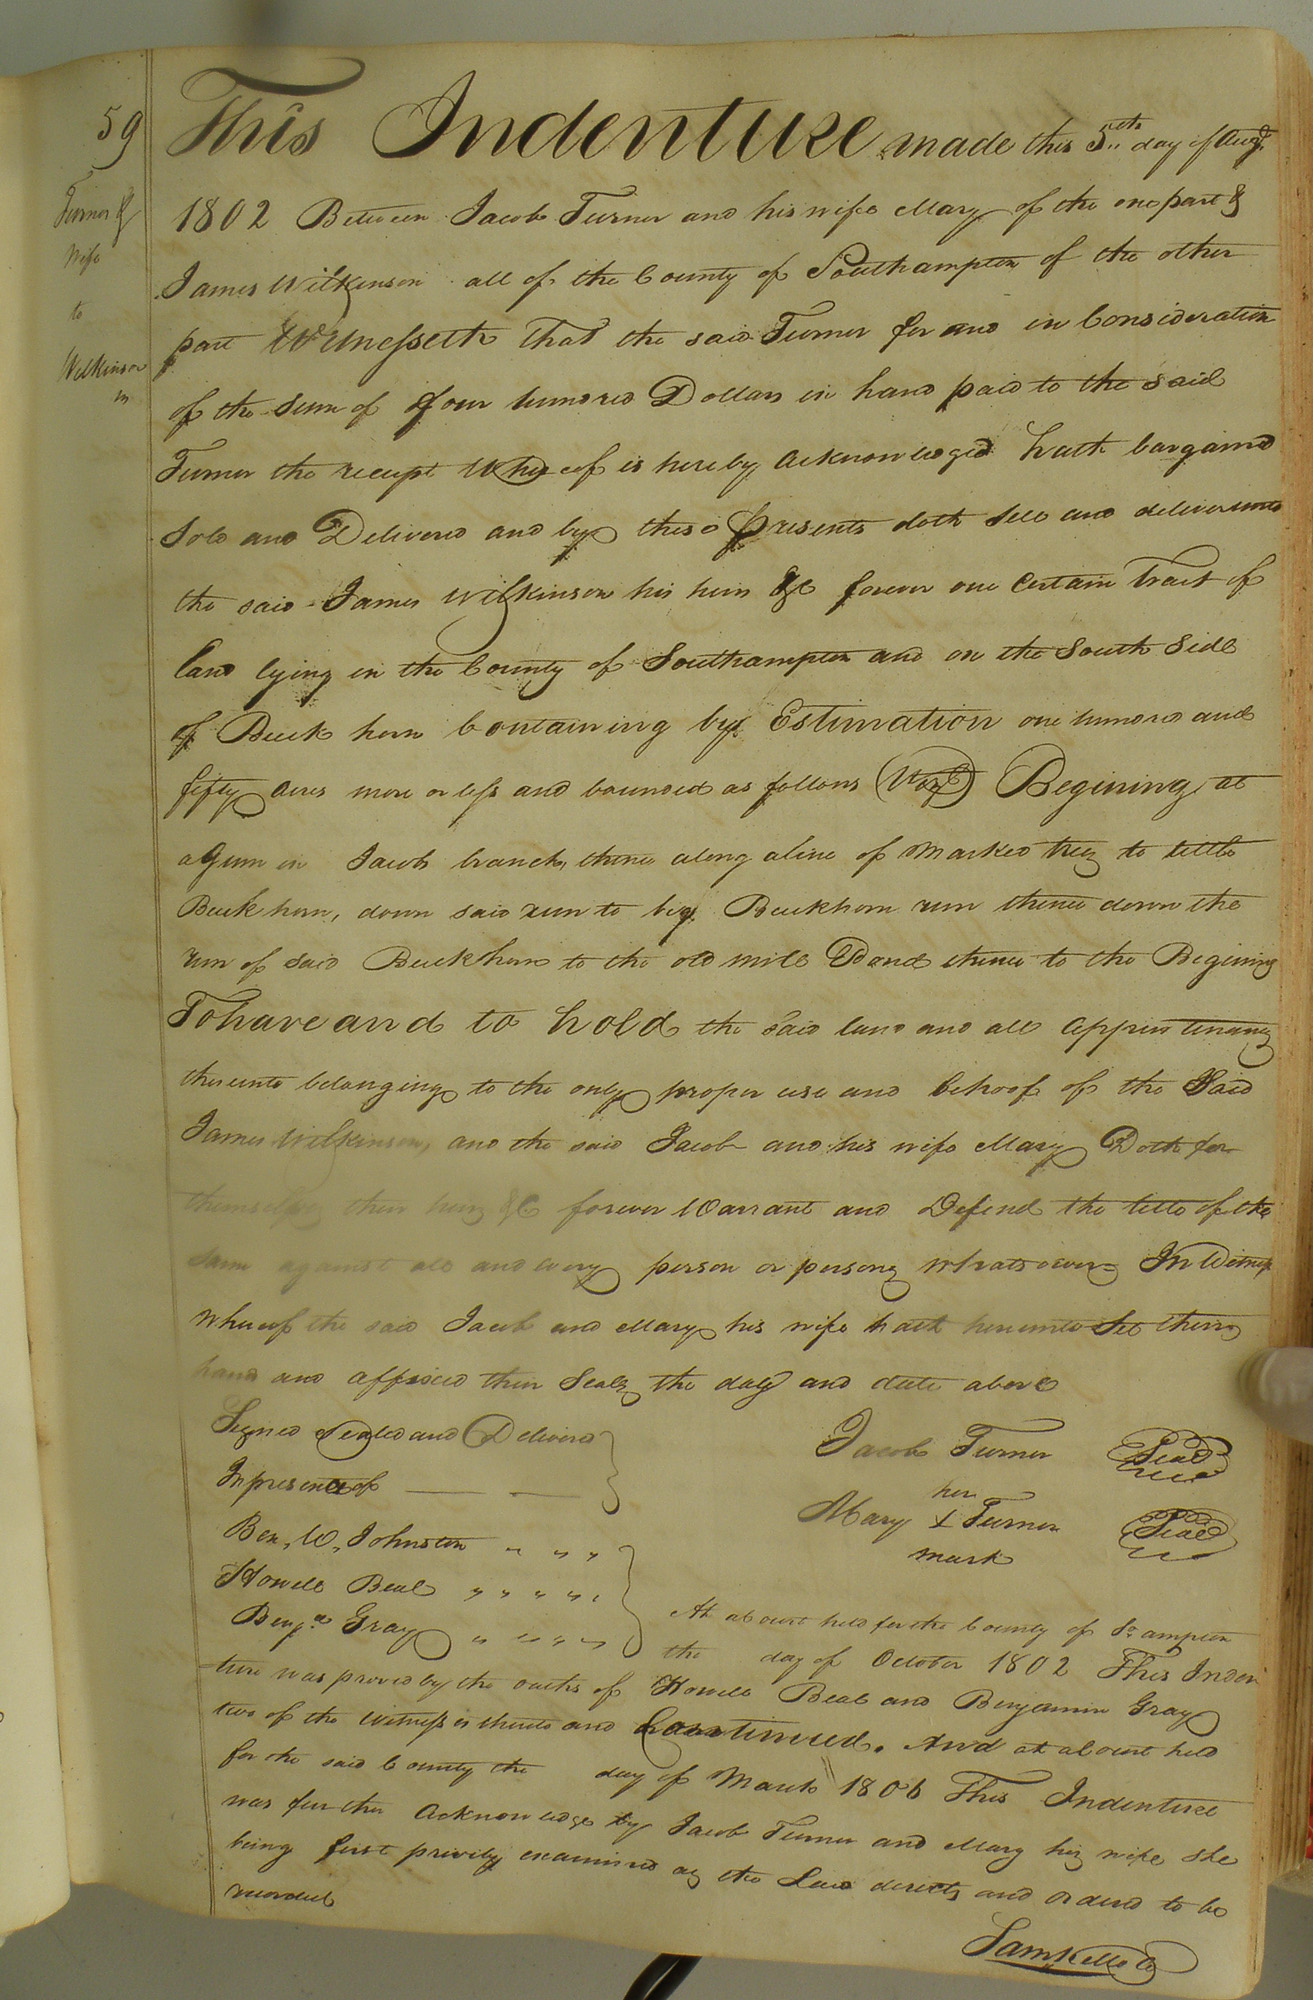 59
Turner &
Wife
to
Wilkinson
This Indenture made this 5th day of Augt.
1802 Between Jacob Turner and his wife Mary of the one part &
James Wilkinson all of the County of Southampton of the other
part Witnesseth that the said Turner for and in Consideration
of the sum of four hundred Dollars in hand paid to the said
Turner the receipt Whereof is hereby Acknowledged hath bargained
Sold and Delivered and by these presents doth sell and deliver unto
the said James Wilkinson his heirs &c forever one Certain Tract of
land lying in the County of Southampton and on the South Side
of Buck horn Containing by Estimation one hundred and
fifty acres more or less and bounded as follows (Viz) Begining at
a Gum in Jacobs branch, thence along a line of Marked trees to little
Buck horn, down said run to big Buckhorn run thence down the
run of said Buckhorn to the old mill Pond thence to the Begining
To have and to hold the said land and all Appurtenances
thereunto belonging to the only proper use and behoof of the Said
James Wilkinson, and the said Jacob and his wife Mary Doth for
themselves their heirs &c forever Warrant and Defend the title of the
same against all and every person or persons whatsoever In Witness
whereof the said Jacob and Mary his wife hath hereunto Set their
hand and affixed their Seals the day and date above
Signed Sealed and Deliverd
In presents of
Jacob Turner Seal
her
Mary X Turner Seal
mark
Ben. W. Johnston
Howell Beal
Benja. Gray
At a Court held for the County of So. ampton
the day of October 1802 This Inden
ture was proved by the oaths of Howell Beal and Benjamin Gray
two of the Witnesses thereto and Continued. And at a Court held
for the said County the day of March 1806 This Indenture
was further Acknowledge by Jacob Turner and Mary his wife she
being first privily examined as the Law directs and orderd to be
recorded
Sam Kello C